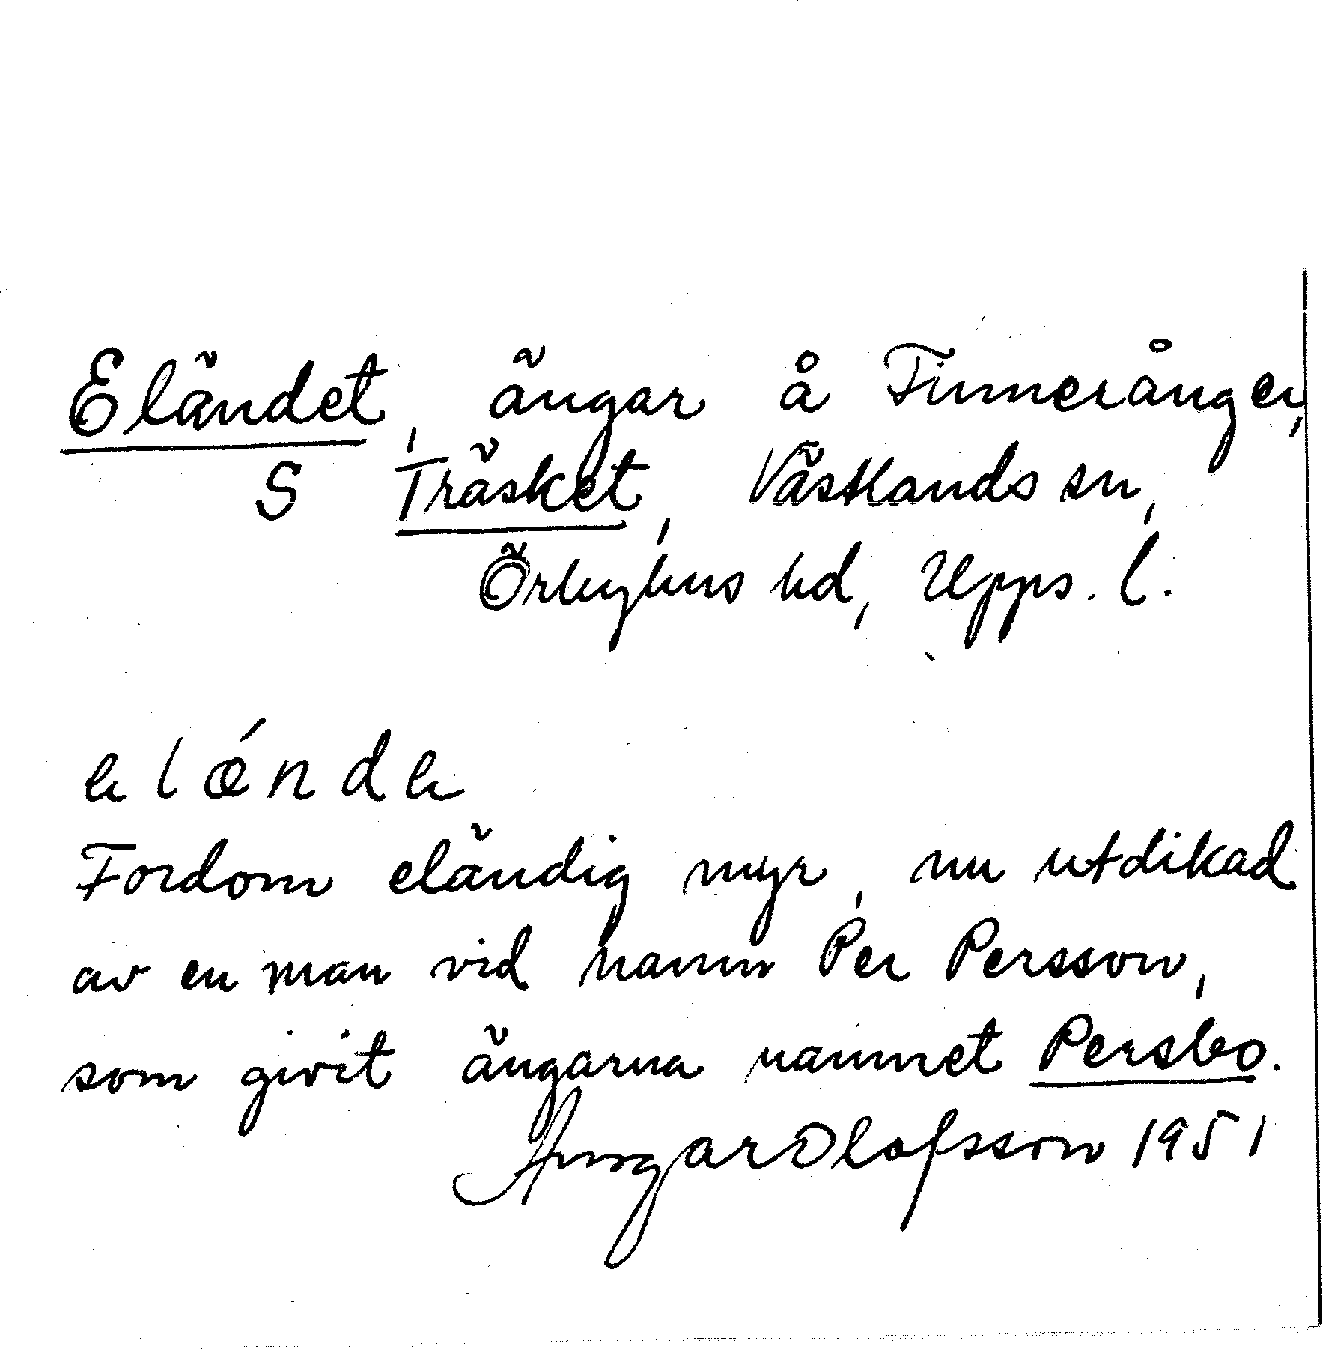 Eländet, ängar å Finnerånger,
S Träsket, Västlands sn,
Örbyhus hd, Upps. l.
elænde
Fordom eländig myr, nu utdikad
av en man vid namn Per Persson,
som givit ängarna namnet Persbo.
Olofsson 1951